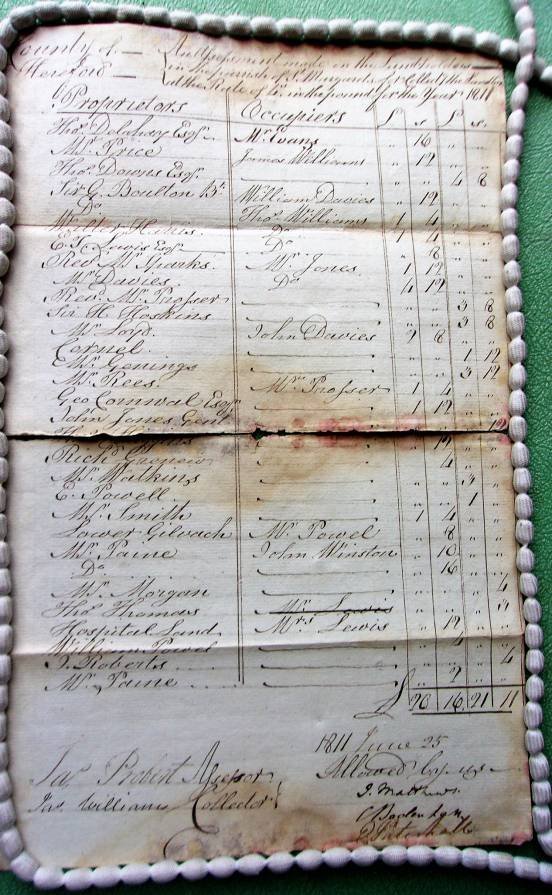 County of
Hereford
An Assessment made on the Landholders
in the parish of St Margarets for Collecting
at the Rate of in the pound for the Year 1811
Proprietors Occupiers £ s £ s
Thos Delahay Esqr Mr Evans " 16 " "
Mr Price James Williams " 12 " "
Thos Downs Esqr " " 4 8
Sir G. Boulton Bt William Davies " 12 " "
Do Thos Williams 1 4 " "
Walter Harris Do 1 4 " "
E. T. Lewis Esqr Do " 8 " "
Revd Mr Sparks Mr Jones 1 12 " "
Mr Davies Do 4 12 " "
Revd Mr Prosser " " 3 8
Sir H Hoskins " " 3 8
Mr Loyd John Davies 2 8 " "
Cornel " " 1 12
Mr Genings " " 3 12
Mr Rees Mr Prosser 1 4 " "
Geo Cornwal Esqr 1 12 " "
John Jones Gent 12
12
Richd 4
Mr Watkins " " 3 "
E. Powell " " 1 "
Mr Smith 1 4 " "
Lower Gilvach Mr Powel " 8 " "
Mr Paine John Winston " 10 " "
Do " 16 " "
Mr Morgan 4
Thos Thomas Mr Lewis
Hospital Land Mrs Lewis " 12 " "
William Powel 4
J. Roberts 4
Mr Paine " 2 " "
£ 26 16 21 11
1811 June 25
Jas Probert Assessor Allowed by us
Jas Williams Collector J. Matthews